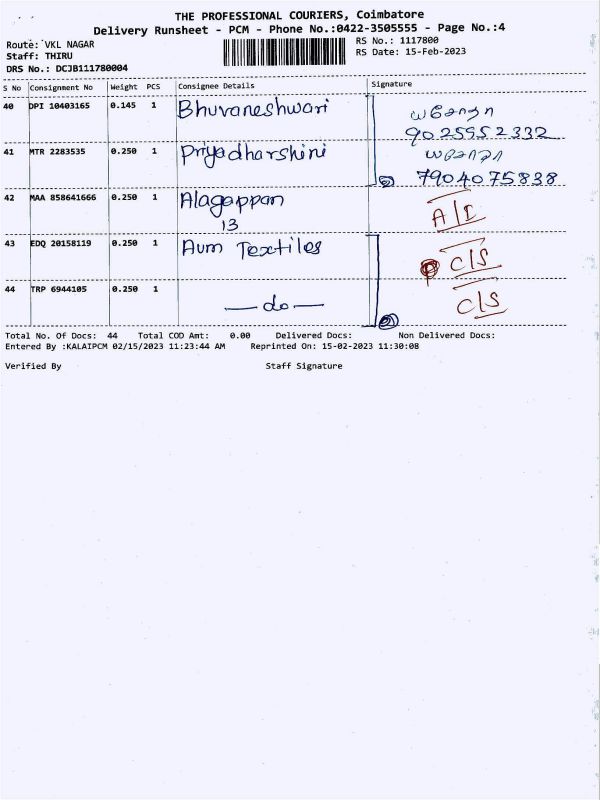 THE PROFESSIONAL COURIERS, Coimbatore
Delivery Runsheet - PCM - Phone No.:0422-3505555 - Page No.:4
Route: VKL NAGAR
RS No.: 1117800
Staff: THIRU
RS Date: 15-Feb-2023
DRS No.: DCJB111780004
S No Consignment No Weight PCS Consignee Details Signature
40 DPI 10403165 0.145 1 Bhuvaneshwari
9025552332
41 MTR 2283535 0.250 1 Priyadharshini
7904075838
42 MAA 858641666 0.250 1 Alagappan A/I
13
43 EDQ 20158119 0.250 1 Aum Textiles C/S
44 TRP 6944105 0.250 1 — do — C/S
Total No. Of Docs: 44 Total COD Amt: 0.00 Delivered Docs: Non Delivered Docs:
Entered By :KALAIPCM 02/15/2023 11:23:44 AM Reprinted On: 15-02-2023 11:30:08
Verified By Staff Signature